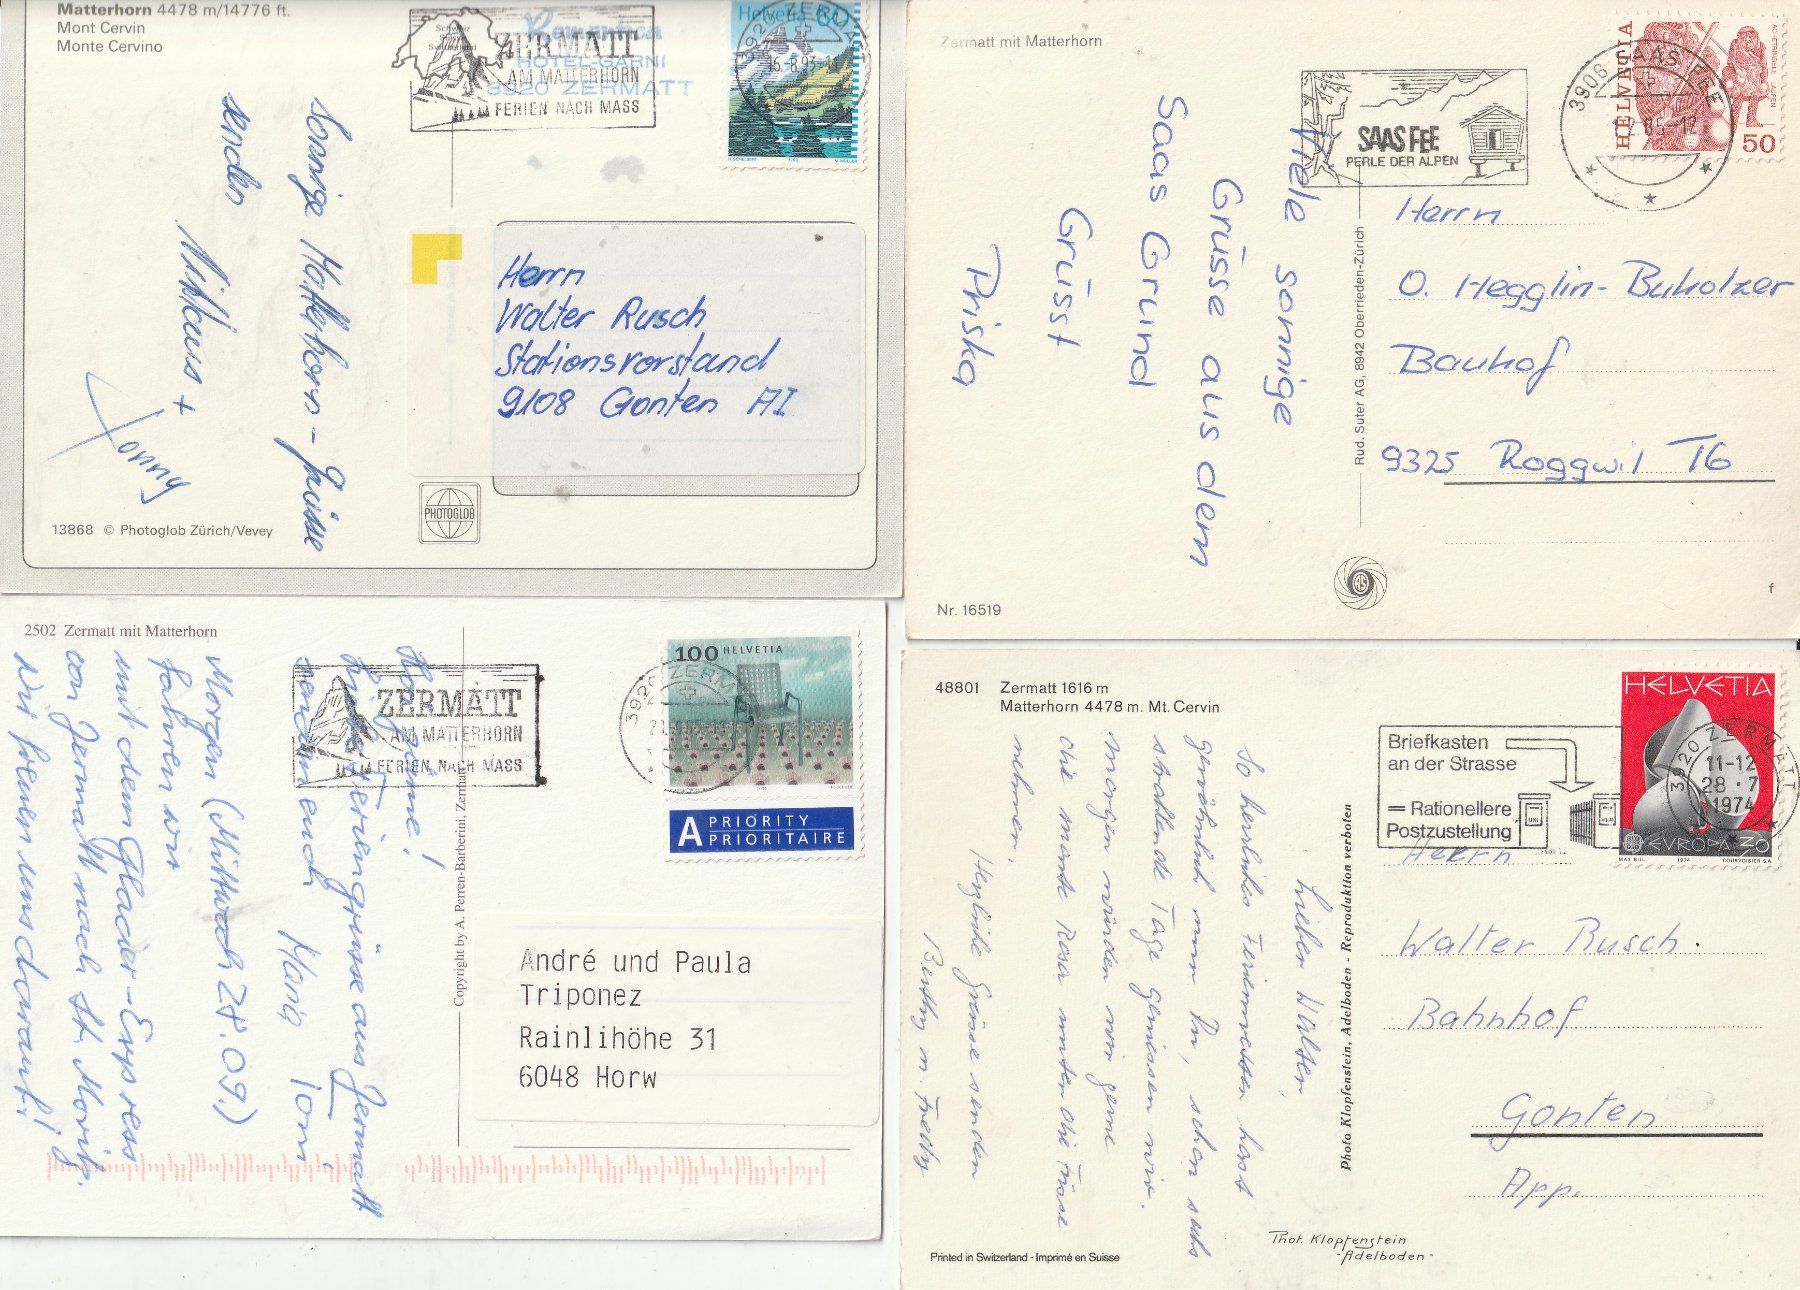 Matterhorn 4478 m/14776 ft.
Mont Cervin
Monte Cervino
Schweiz
Suisse
Switzerland
ZERMATT
AM MATTERHORN
FERIEN NACH MASS
Romantica
HOTEL-GARNI
3920 ZERMATT
Helvetia
3920 ZERMATT
Sonnige Matterhorn-Grüsse
senden
Niklaus +
Jonny
Herrn
Walter Rusch
Stationsvorstand
9108 Gonten AI
13868 © Photoglob Zürich/Vevey
PHOTOGLOB
Zermatt mit Matterhorn
SAAS FEE
PERLE DER ALPEN
3906 SAAS FEE
HELVETIA
ACHETRINGELE LAUPEN
50
Viele sonnige
Grüsse aus dem
Saas Grund
Grüsst
Priska
Rud. Suter AG, 8942 Oberrieden-Zürich
Herrn
O. Hegglin-Buholzer
Bauhof
9325 Roggwil TG
Nr. 16519
f
2502 Zermatt mit Matterhorn
ZERMATT
AM MATTERHORN
FERIEN NACH MASS
3920 ZERMATT
100 HELVETIA
A PRIORITY
PRIORITAIRE
Feriengrüsse aus Zermatt
senden euch Tom
Morgen (Mittwoch 28.09.)
fahren wir
mit dem Glacier-Express
von Zermatt nach St. Moritz.
Wir freuen uns darauf!
Copyright by A. Perren-Barberini, Zermatt
André und Paula
Triponez
Rainlihöhe 31
6048 Horw
48801 Zermatt 1616 m
Matterhorn 4478 m. Mt. Cervin
Briefkasten
an der Strasse
= Rationellere
Postzustellung
3920 ZERMATT
11-12
28.7
1974
HELVETIA
EUROPA 30
MAX BILL 1974 COURVOISIER S.A.
Lieber Walter,
So herrliches Ferienwetter hast
gewöhnlich nur Du, schon sechs
strahlende Tage geniessen wir.
Morgen würden wir gerne
die Monte Rosa unter die Füsse
nehmen.
Herzliche Grüsse senden
Photo Klopfenstein, Adelboden - Reproduktion verboten
Herrn
Walter Rusch.
Bahnhof
Gonten
App.
Phot. Klopfenstein
-Adelboden-
Printed in Switzerland - Imprimé en Suisse